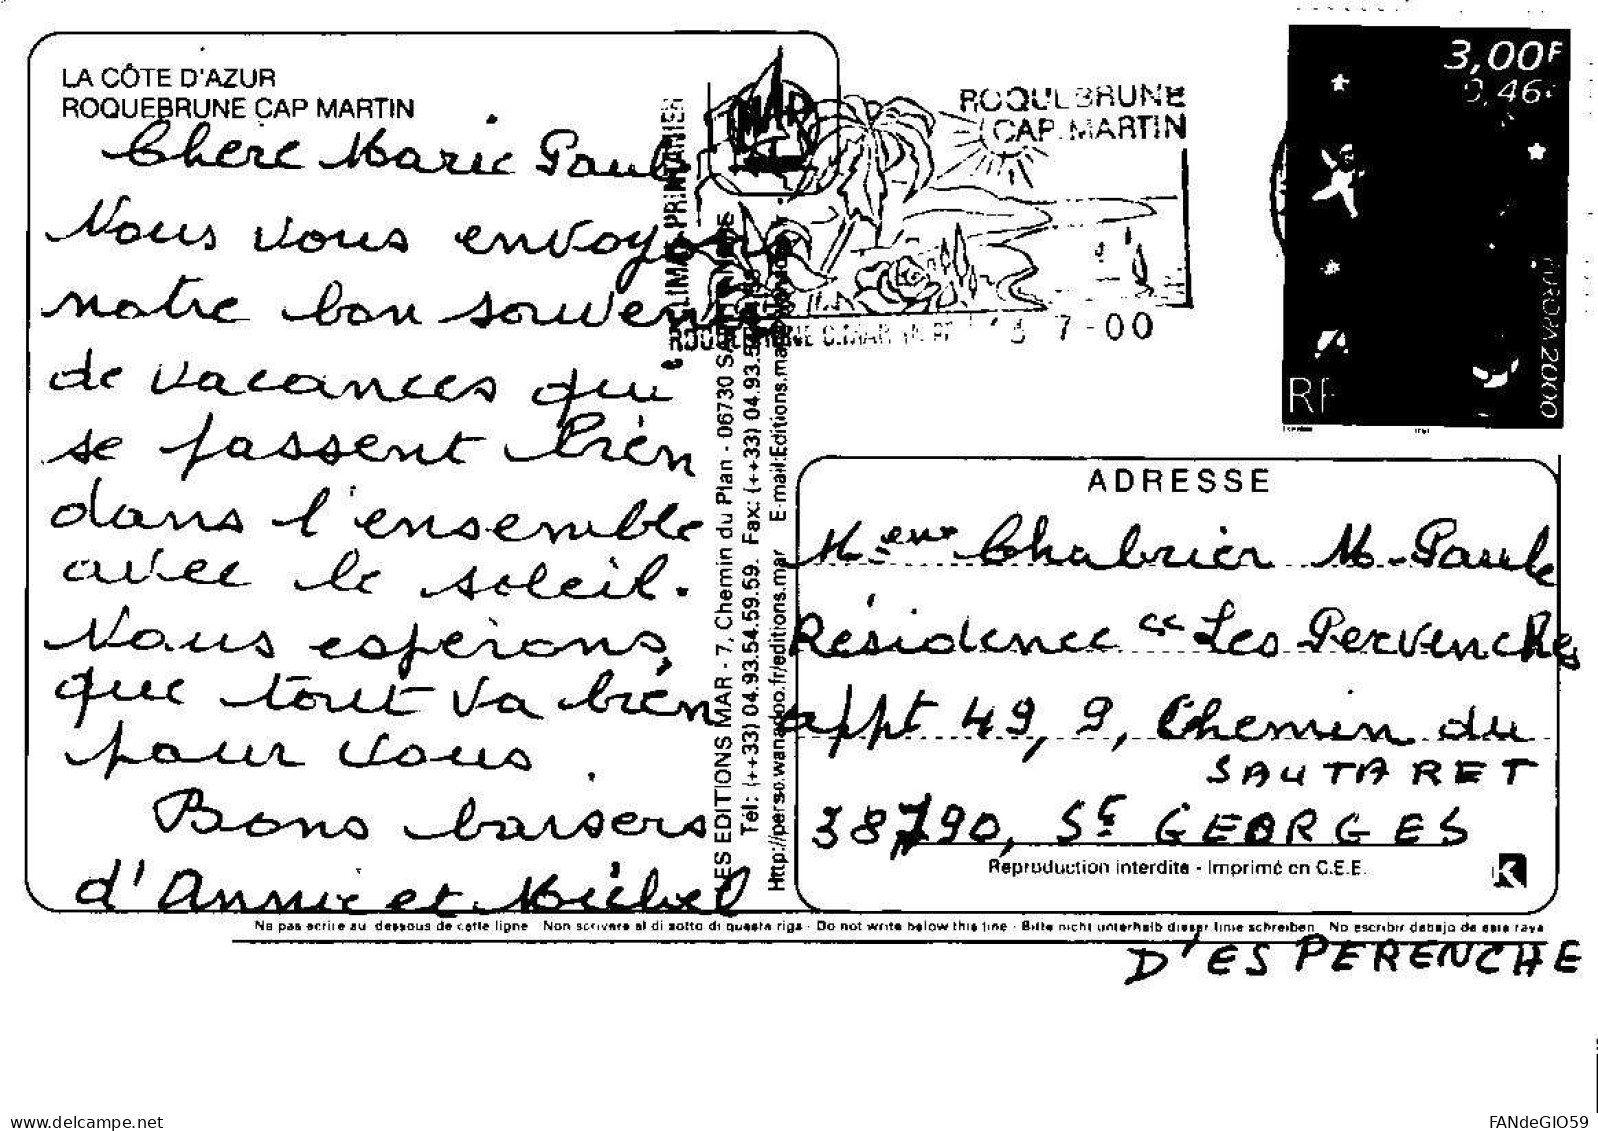 LA CÔTE D'AZUR
ROQUEBRUNE CAP MARTIN
Chère Marie Paule
Nous vous envoyons
notre bon souvenir
de vacances qui
se passent bien
dans l'ensemble
avec le soleil.
Nous espérons,
que tout va bien
pour vous.
Bons baisers
d'Annie et Michel
MAR
CLIMAT PRINTANIER
ROQUEBRUNE
CAP MARTIN
7-00
3,00F
0,46€
RF
EUROPA 2000
LES EDITIONS MAR - 7, Chemin du Plan - 06730
Tél: (++33) 04.93.54.59.59. Fax: (++33) 04.93.
Http://perso.wanadoo.fr/editions.mar E-mail:Editions.mar
ADRESSE
Mme Chabrier M-Paule
Résidence "Les Pervenches
appt 49, 9, Chemin du
SAUTARET
38790, St GEORGES
D'ESPERENCHE
Reproduction interdite - Imprimé en C.E.E.
K
Ne pas écrire au dessous de cette ligne Non scrivere al di sotto di questa riga - Do not write below this line - Bitte nicht unterhalb dieser linie schreiben No escribir debajo de esta raya
delcampe.net
FANdeGIO59